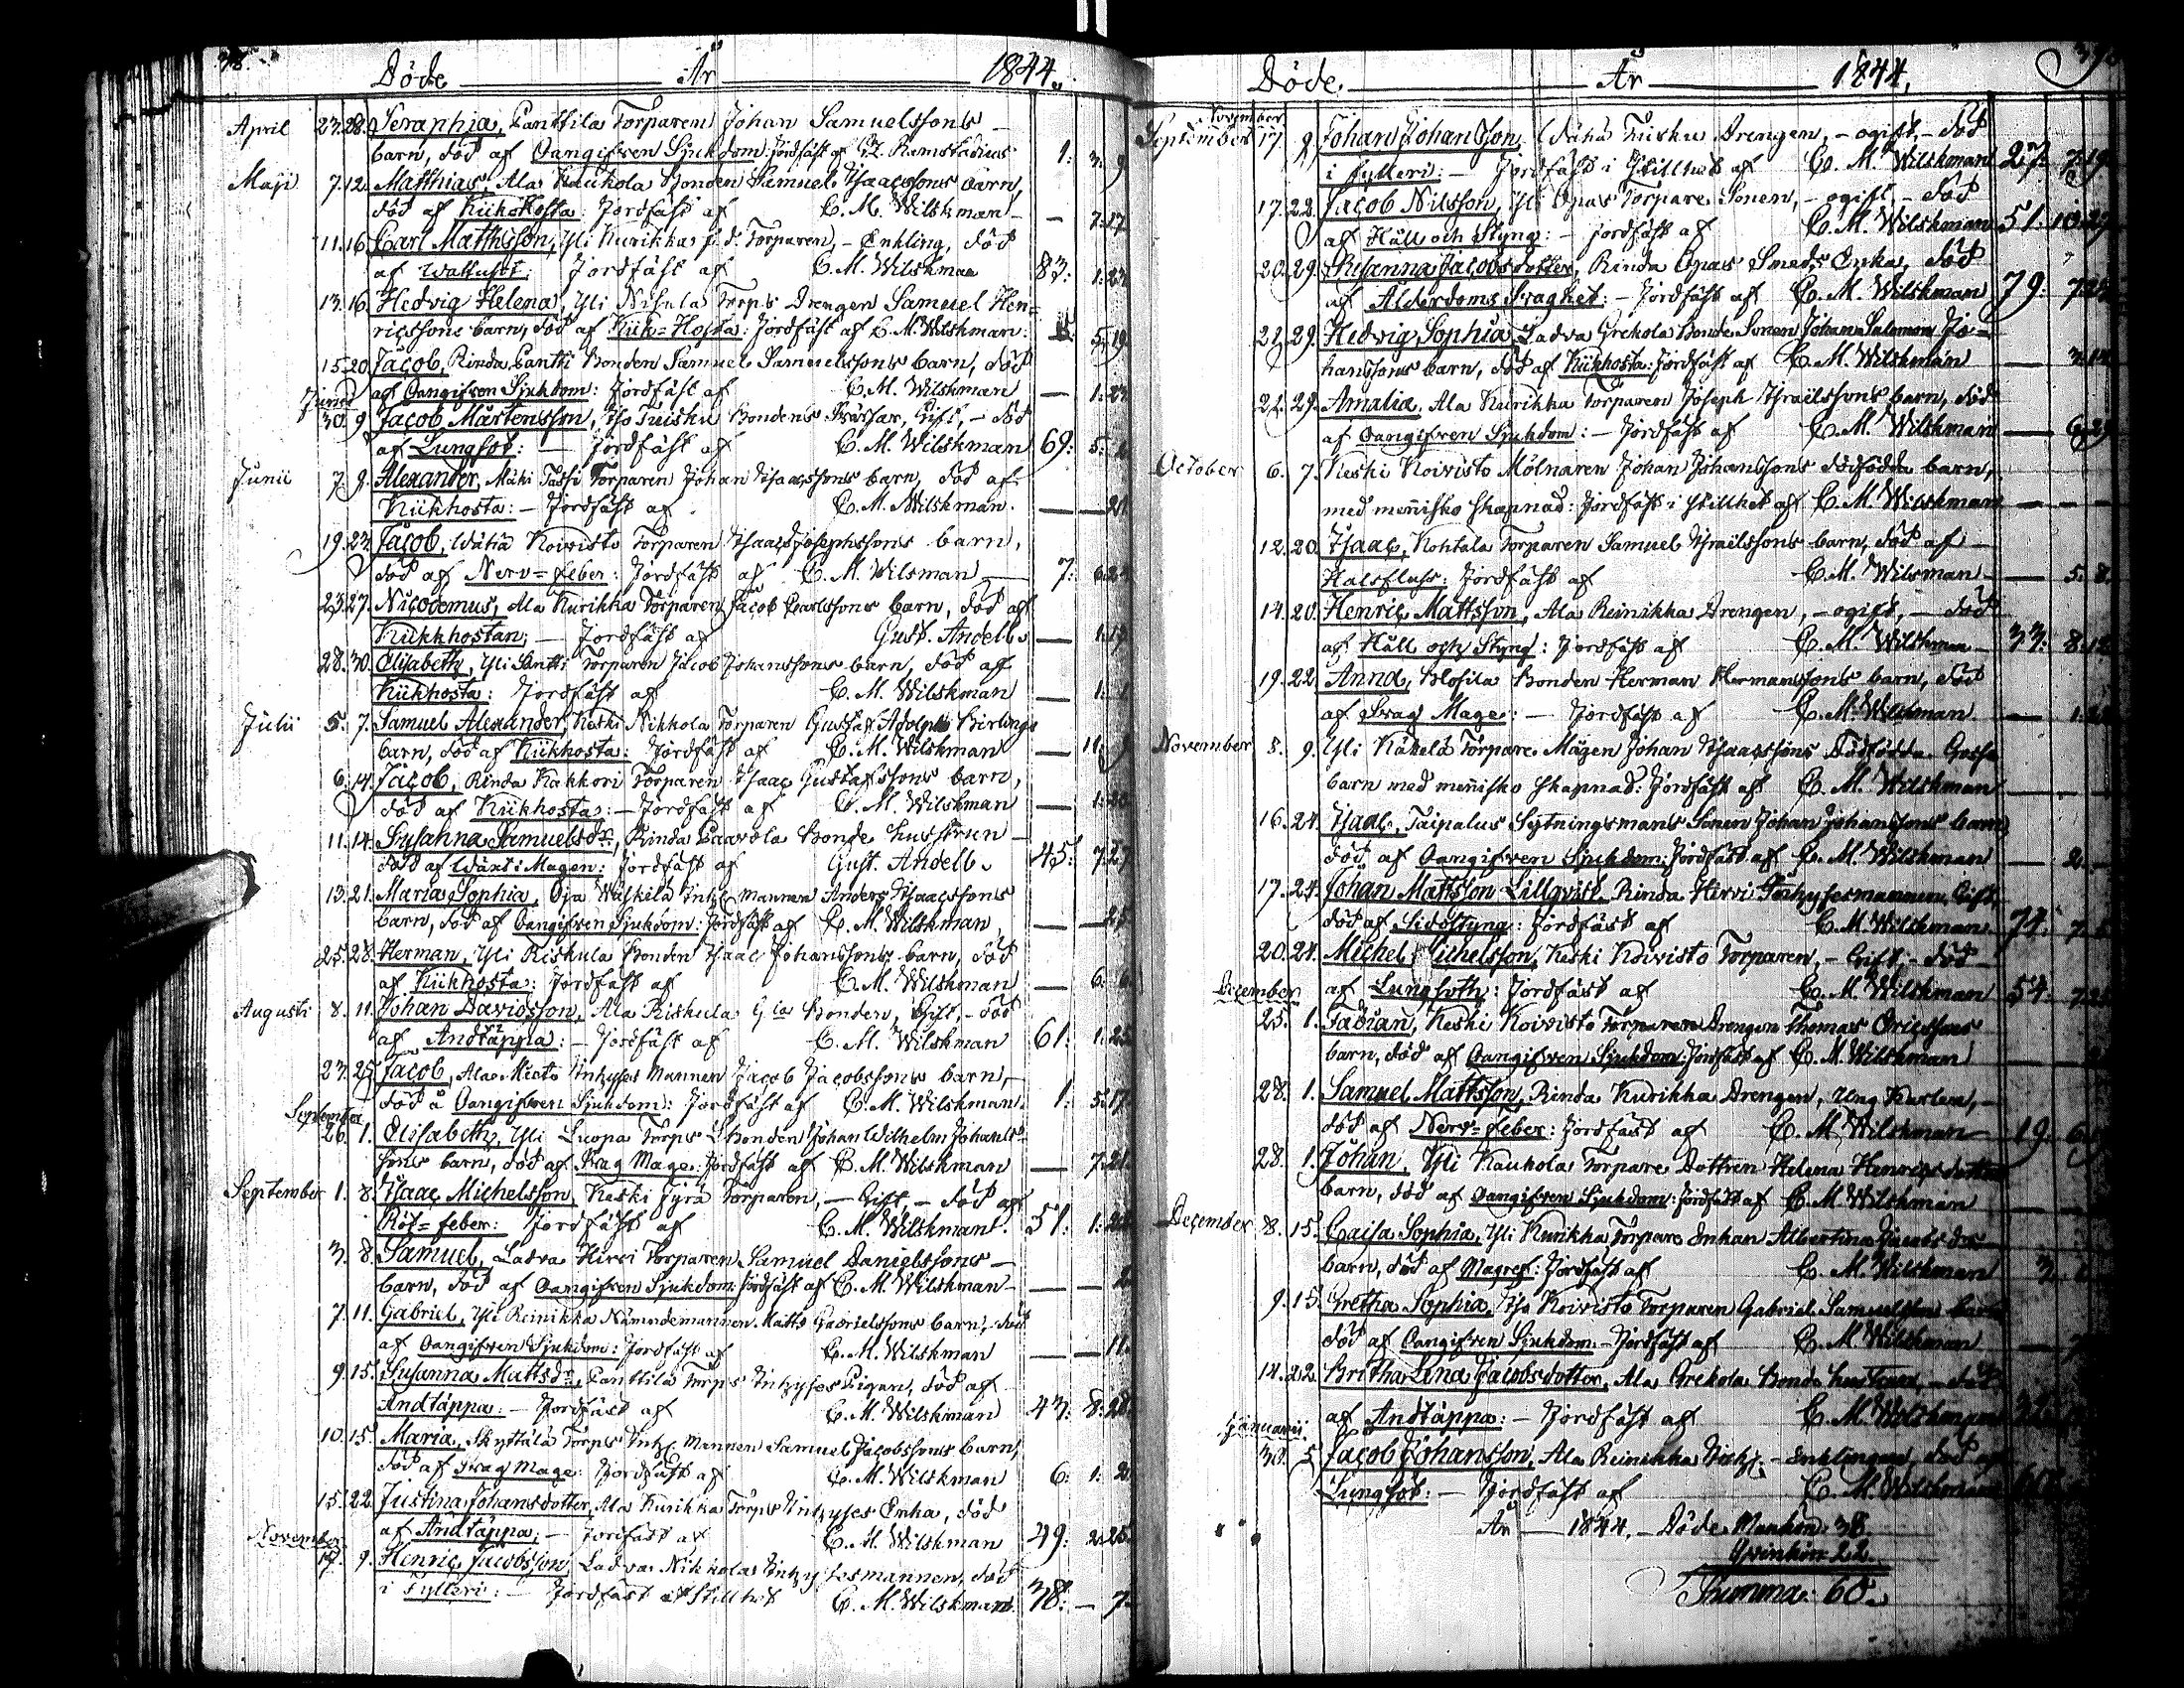 38.
Döde År 1844.
April 23. 28. Seraphia, Panttila Torparen Johan Samuelssons
barn, död af Oangifven Sjukdom: Jordfäst af Ramstadius 1: 3: 9
Maji 7. 12. Matthias, Ala Kaukola Bonden Samuel Isaacssons barn,
död af Kikhosta: Jordfäst af C. M. Wilskman — 7: 17
11. 16. Carl Matthsson, Yli Kurikka f. d. Torparen, – Enkling, död
af Wattusot: Jordfäst af C. M. Wilskman 83: 1: 23
13. 16. Hedvig Helena, Yli Nisula Torps Drengen Samuel Hen=
ricssons barn, död af Kik=Hosta: Jordfäst af C. M. Wilskman: 5: 19
15. 20. Jacob, Rinda Pantti Bonden Samuel Samuelssons barn, död
af Oangifven Sjukdom: Jordfäst af C. M. Wilskman — 1: 23
Junii
30. 9. Jacob Mårtensson, Iso Tuisku Bondens Svärfar, Gift, – död
af Lungsot: — Jordfäst af C. M. Wilskman 69: 5:
Junii 7. 9. Alexander, Mäki Passi Torparen Johan Isaacssons barn, död af
Kikhosta: – Jordfäst af C. M. Wilskman. — — 21
19. 23. Jacob, Wähä Koivisto Torparen Isaac Josephssons barn,
död af Nerv=feber: Jordfäst af C. M. Wilsman 7: 6:
23. 27. Nicodemus, Ala Kurikka Torparen Jacob Carlssons barn, död af
Kikkhostan; — Jordfäst af Gust. Andell. — 1:
28. 30. Elisabeth, Yli Pantti Torparen Jacob Johanssons barn, död af
Kikhosta: Jordfäst af C. M. Wilskman — 1:
Julii 5. 7. Samuel Alexander, Keski Nikkola Torparen Gustaf Adolph Birlings
barn, död af Kikhosta: Jordfäst af C. M. Wilskman — 11:
6. 14. Jacob, Rinda Kakkori Torparen Isaac Gustafssons barn,
död af Kikhosta: – Jordfäst af C. M. Wilskman — 1: 20
11. 14. Susanna Samuelsdr, Rinda Paavola Bonde hustrun –
död af Wäxt i Magen: Jordfäst af Gust. Andell. 45: 7: 27
13. 21. Maria Sophia, Oja Wälkilä Inhys Mannen Anders Isaacssons
barn, död af Oangifven Sjukdom: Jordfäst af C. M. Wilskman — — 25
25. 28. Herman, Yli Riskula Bonden Isaac Johanssons barn, död
af Kikhosta: Jordfäst af C. M. Wilskman — 6: 6
Augusti 8. 11. Johan Davidsson, Ala Riskula Gla Bonden, Gift, – död
af Andtäppa: – Jordfäst af C. M. Wilskman 61: 1: 25
23. 25. Jacob, Ala Mieto Inhyses Mannen Jacob Jacobssons barn, –
död å Oangifven Sjukdom: Jordfäst af C. M. Wilskman. 1: 5: 17
September
26. 1. Elisabeth, Yli Luopa Torps Bonden Johan Wilhelm Johans=
sons barn, död af Svag Mage: Jordfäst af C. M. Wilskman — 7: 21
September 1. 8. Isaac Michelsson, Keski Jyrä Torparen, — Gift, – död af
Röt=feber: Jordfäst af C. M. Wilskman. 51: 1: 28
3. 8. Samuel, Ladva Hirvi Torparen Samuel Danielssons –
barn, död af Oangifven Sjukdom: Jordfäst af C. M. Wilskman — — 2
7. 11. Gabriel, Yli Reinikka Nämndemannen Matts Gabrielssons barn, död
af Oangifven Sjukdom: Jordfäst af C. M. Wilskman — — 11.
9. 15. Susanna Mattsdr, Panttila Torps Inhyses Pigan, död af
Andtäppa: – Jordfäst af C. M. Wilskman 43: 8: 28
10. 15. Maria, Skyttälä Torps Inh. Mannen Samuel Jacobssons barn,
död af svag Mage: Jordfäst af C. M. Wilskman 6: 1: 2
15. 22. Justina Johansdotter, Ala Kurikka Torps Inhyses Enka, död
af Andtäppa; – Jordfäst af C. M. Wilskman 49: 2: 25
November
17. 9. Henric Jacobsson, Ladva Nikkola Inhysesmannen, död
i Fylleri: – Jordfäst i Stillhet C. M. Wilskman. 38: – 7.
Döde. År 1844.
November
September 17. 9. Johan Johansson, Wähä Tuisku Drengen, – ogift, – död
i fylleri: – Jordfäst i Stillhet af C. M. Wilskman 27: 7: 19
17. 22. Jacob Nilsson, Yli Opas Torpare Sonen, – ogift, – död
af Håll och Styng: – Jordfäst af C. M. Wilskman 51: 10: 27
20. 29. Susanna Jacobsdotter, Rinda Opas Smeds Enka, död
af Ålderdoms Svaghet: – Jordfäst af C. M. Wilskman 79: 7:
22. 29. Hedvig Sophia, Ladva Grekola Bonde Sonen Johan Salomon Jo=
hanssons barn, död af Kikhosta: Jordfäst af C. M. Wilskman — 3:
22. 29. Amalia, Ala Kurikka Torparen Joseph Israelssons barn, död
af Oangifven Sjukdom: – Jordfäst af C. M. Wilskman — 6: 29
October 6. 7. Keski Koivisto Mölnaren Johan Johanssons dödfödda barn,
med menisko skapnad: Jordfäst i Stillhet af C. M. Wilskman — — —
12. 20. Isaac, Kohtala Torparen Samuel Israelssons barn, död af –
Halsfluss: Jordfäst af C. M. Wilsman — 5: 8
14. 20. Henric Mattsson, Ala Reinikka Drengen, – ogift, – död
af Håll och Styng: Jordfäst af C. M. Wilskman 33: 8: 12
19. 22. Anna, Blofila Bonden Herman Hermanssons barn, död
af Svag Mage: – Jordfäst af C. M. Wilskman — 1:
November 8. 9. Yli Käkelä Torpare Mågen Johan Isaacssons Dödfödda Gosse
barn med menisko skapnad: Jordfäst af C. M. Wilskman — — —
16. 24. Isaac, Taipalus Sytningsmans Sonen Johan Johanssons barn
död af Oangifven Sjukdom: Jordfäst af C. M. Wilskman — 2. —
17. 24. Johan Mattsson Lillqvist, Rinda Hirvi Inhysesmannen, Gift,
död af Sidostyng: Jordfäst af C. M. Wilskman 74: 7:
20. 24. Michel Michelsson, Keski Koivisto Torparen, – Gift, – död
af Lungsoth: Jordfäst af C. M. Wilskman 54. 7:
December
25. 1. Fabian, Keski Koivisto Torparen Drengen Thomas Ericssons
barn, död af Oangifven Sjukdom: Jordfäst af C. M. Wilskman
28. 1. Samuel Mattsson, Rinda Kurikka Drengen, Ung Karlen, –
död af Nerv=feber: Jordfäst af C. M. Wilskman 19. 6.
28. 1. Johan, Yli Kaukola Torpare Dottren Helena Henricsdotters
barn, död af Oangifven Sjukdom: Jordfäst af C. M. Wilskman
December 8. 15. Cajsa Sophia, Yli Kurikka Torpare Enkan Albertina Jacobsdrs
barn, död af Magref: Jordfäst af C. M. Wilskman 3.
9. 15. Gretha Sophia, Iso Koivisto Torparen Gabriel Samuelssons barn
död af Oangifven Sjukdom: – Jordfäst af C. M. Wilskman
14. 22. Britha Lena Jacobsdotter, Ala Grekola Bonde hustrun, – död
af Andtäppa: – Jordfäst af C. M. Wilskman
Januarii
30. 5. Jacob Johansson, Ala Reinikka Inhys. Enklingen, död af
Lungsot: – Jordfäst af C. M. Wilskman
År — 1844. – Döde Mankön: 38.
Qvinkön 22
Summa: 60.